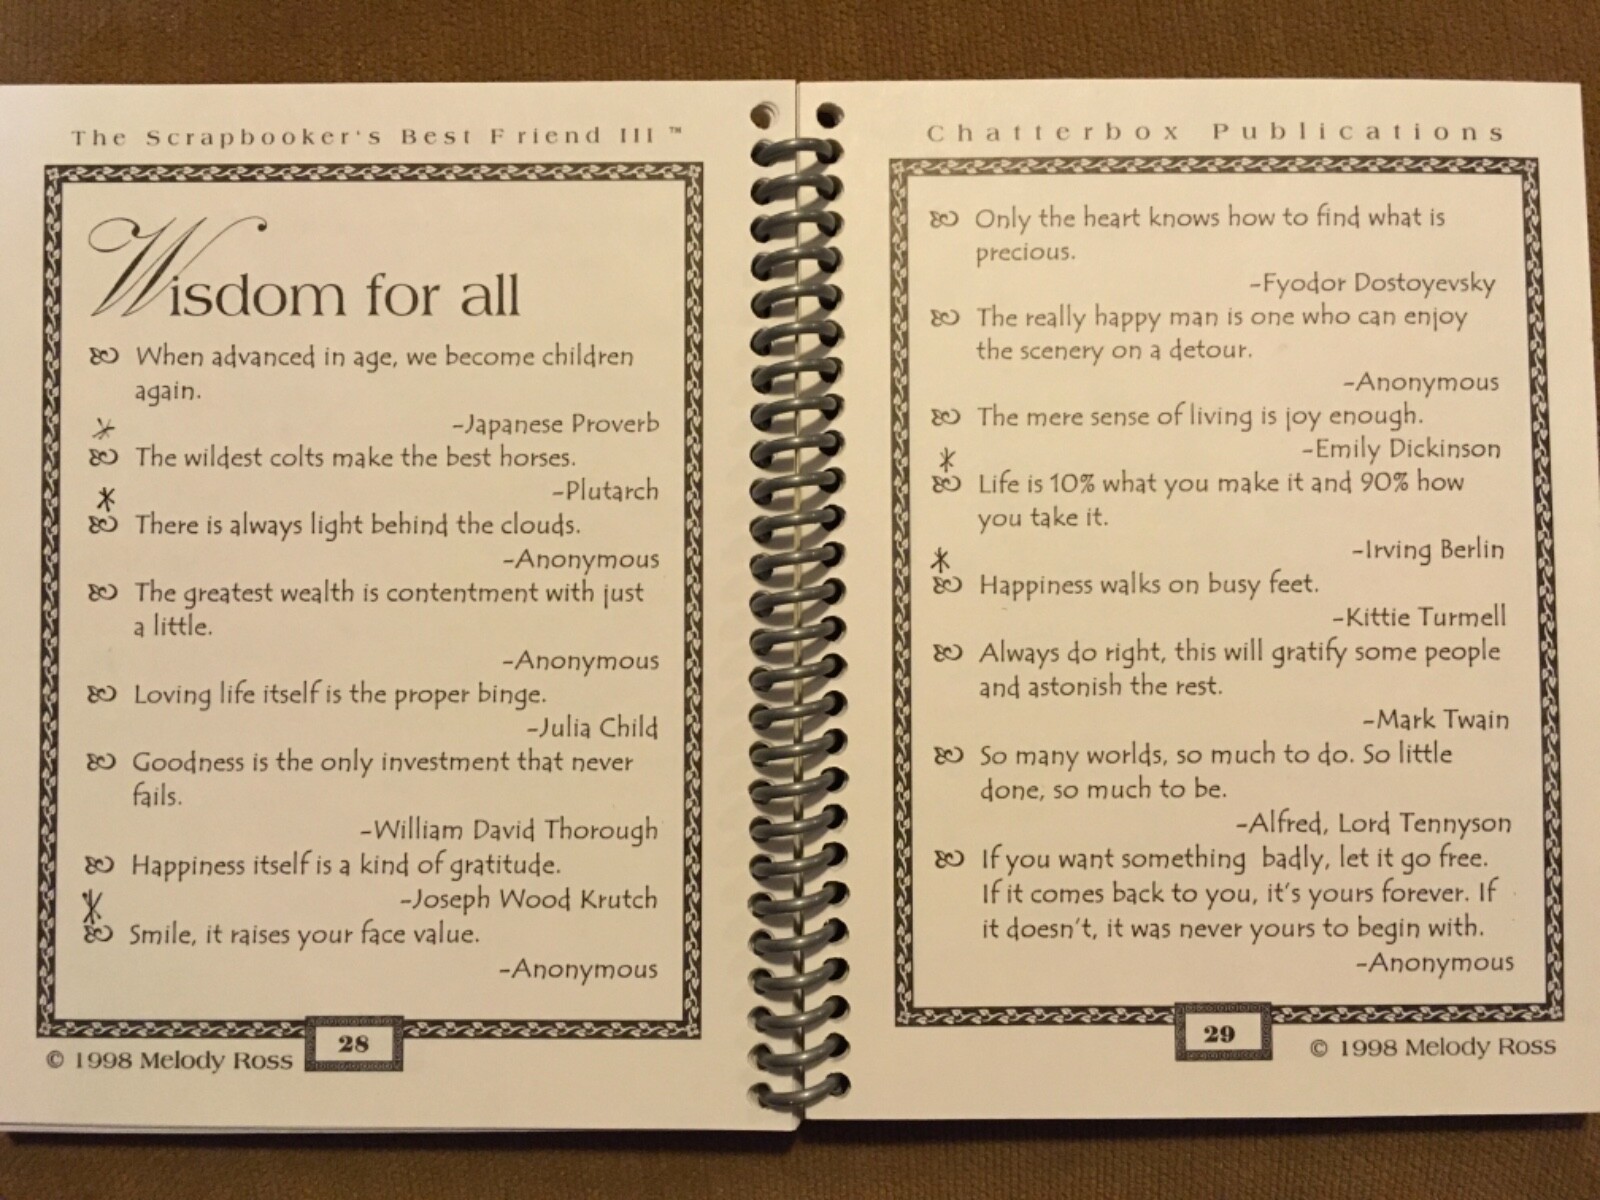 The Scrapbooker's Best Friend III ™
Wisdom for all
When advanced in age, we become children
again.
-Japanese Proverb
The wildest colts make the best horses.
-Plutarch
There is always light behind the clouds.
-Anonymous
The greatest wealth is contentment with just
a little.
-Anonymous
Loving life itself is the proper binge.
-Julia Child
Goodness is the only investment that never
fails.
-William David Thorough
Happiness itself is a kind of gratitude.
-Joseph Wood Krutch
Smile, it raises your face value.
-Anonymous
28
© 1998 Melody Ross
Chatterbox Publications
Only the heart knows how to find what is
precious.
-Fyodor Dostoyevsky
The really happy man is one who can enjoy
the scenery on a detour.
-Anonymous
The mere sense of living is joy enough.
-Emily Dickinson
Life is 10% what you make it and 90% how
you take it.
-Irving Berlin
Happiness walks on busy feet.
-Kittie Turmell
Always do right, this will gratify some people
and astonish the rest.
-Mark Twain
So many worlds, so much to do. So little
done, so much to be.
-Alfred, Lord Tennyson
If you want something badly, let it go free.
If it comes back to you, it's yours forever. If
it doesn't, it was never yours to begin with.
-Anonymous
29
© 1998 Melody Ross